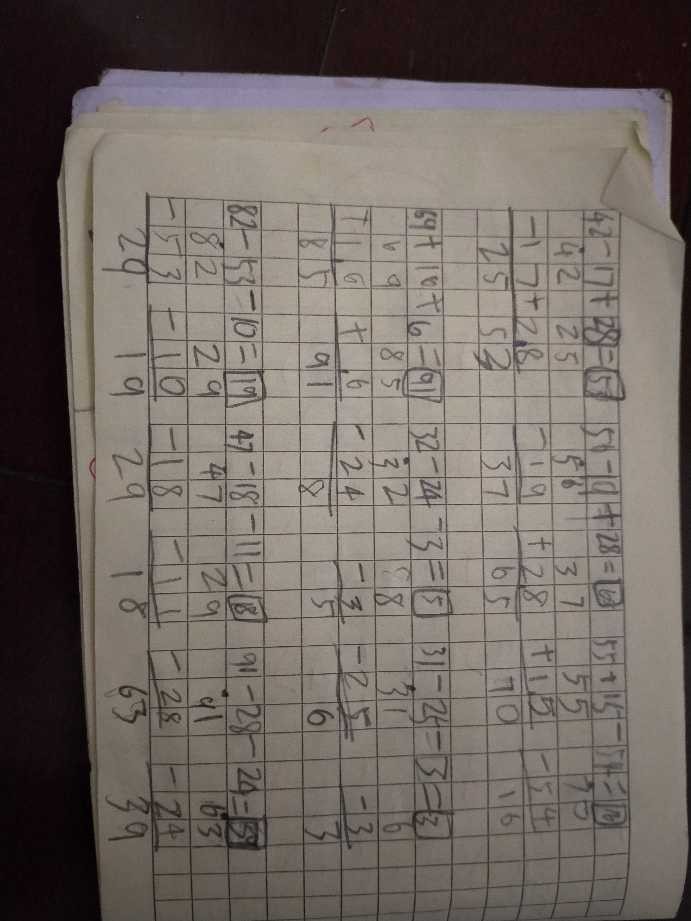 42-17+28=53 56-19+28=65 55+15-54=16
42 25 56 37 55 70
-17 +28 -19 +28 +15 -54
25 53 37 65 70 16
69+16+6=91 32-24-3=5 31-25-3=3
69 85 32 8 31 6
+16 +6 -24 -3 -25 -3
85 91 8 5 6 3
82-53-10=19 47-18-11=18 91-28-24=39
82 29 47 29 91 63
-53 -10 -18 -11 -28 -24
29 19 29 18 63 39